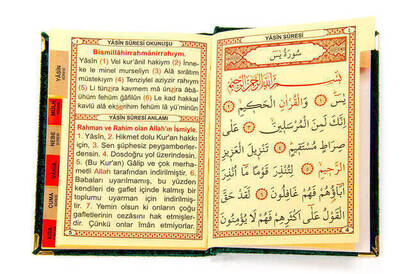 YÂSİN SÛRESİ OKUNUŞU
Bismillâhirrahmânirrahîym.
Yâsîn (2) Vel kur'ânil hakiym (3) İnne-
ke le minel murseliyn (3) Alâ sırâtım
müstekiym (4) Tenziylel aziyzir rahiym
(5) Li tünzira kavmem mâ ünzira âbâ-
ühüm fehüm ğâfilûn (6) Le kad hakkal
kavlü alâ ekserihim fehüm lâ yü'minûn
YÂSİN SÛRESİ ANLAMI
Rahman ve Rahim olan Allah'ın İsmiyle.
1. Yâsîn, 2. Hikmet dolu Kur'an hakkı
için, 3. Sen şüphesiz peygamberler-
densin. 4. Dosdoğru yol üzerindesin.
5. (Bu Kur'an) Gâlip ve çok merha-
metli Allah tarafından indirilmiştir. 6.
Babaları uyarılmamış, bu yüzden
kendileri de gaflet içinde kalmış bir
toplumu uyarman için indirilmiş-
tir. 7. Yemin olsun ki onların çoğu
gafletlerinin cezasını hak etmişler-
dir. Çünkü onlar îman etmiyorlar.
YÂSİN
CUMA
YÂSİN SÛRESİ
سُورَةُ يٰسٓ
بِسْمِ اللّٰهِ الرَّحْمٰنِ الرَّحِيمِ
يٰسٓ ﴿١﴾ وَالْقُرْاٰنِ الْحَكِيمِ ﴿٢﴾
اِنَّكَ لَمِنَ الْمُرْسَلِينَ ﴿٣﴾ عَلٰى
صِرَاطٍ مُسْتَقِيمٍ ﴿٤﴾ تَنْزِيلَ الْعَزِيزِ
الرَّحِيمِ ﴿٥﴾ لِتُنْذِرَ قَوْمًا مَٓا اُنْذِرَ
اٰبَٓاؤُهُمْ فَهُمْ غَافِلُونَ ﴿٦﴾ لَقَدْ حَقَّ
الْقَوْلُ عَلٰٓى اَكْثَرِهِمْ فَهُمْ لَا يُؤْمِنُونَ